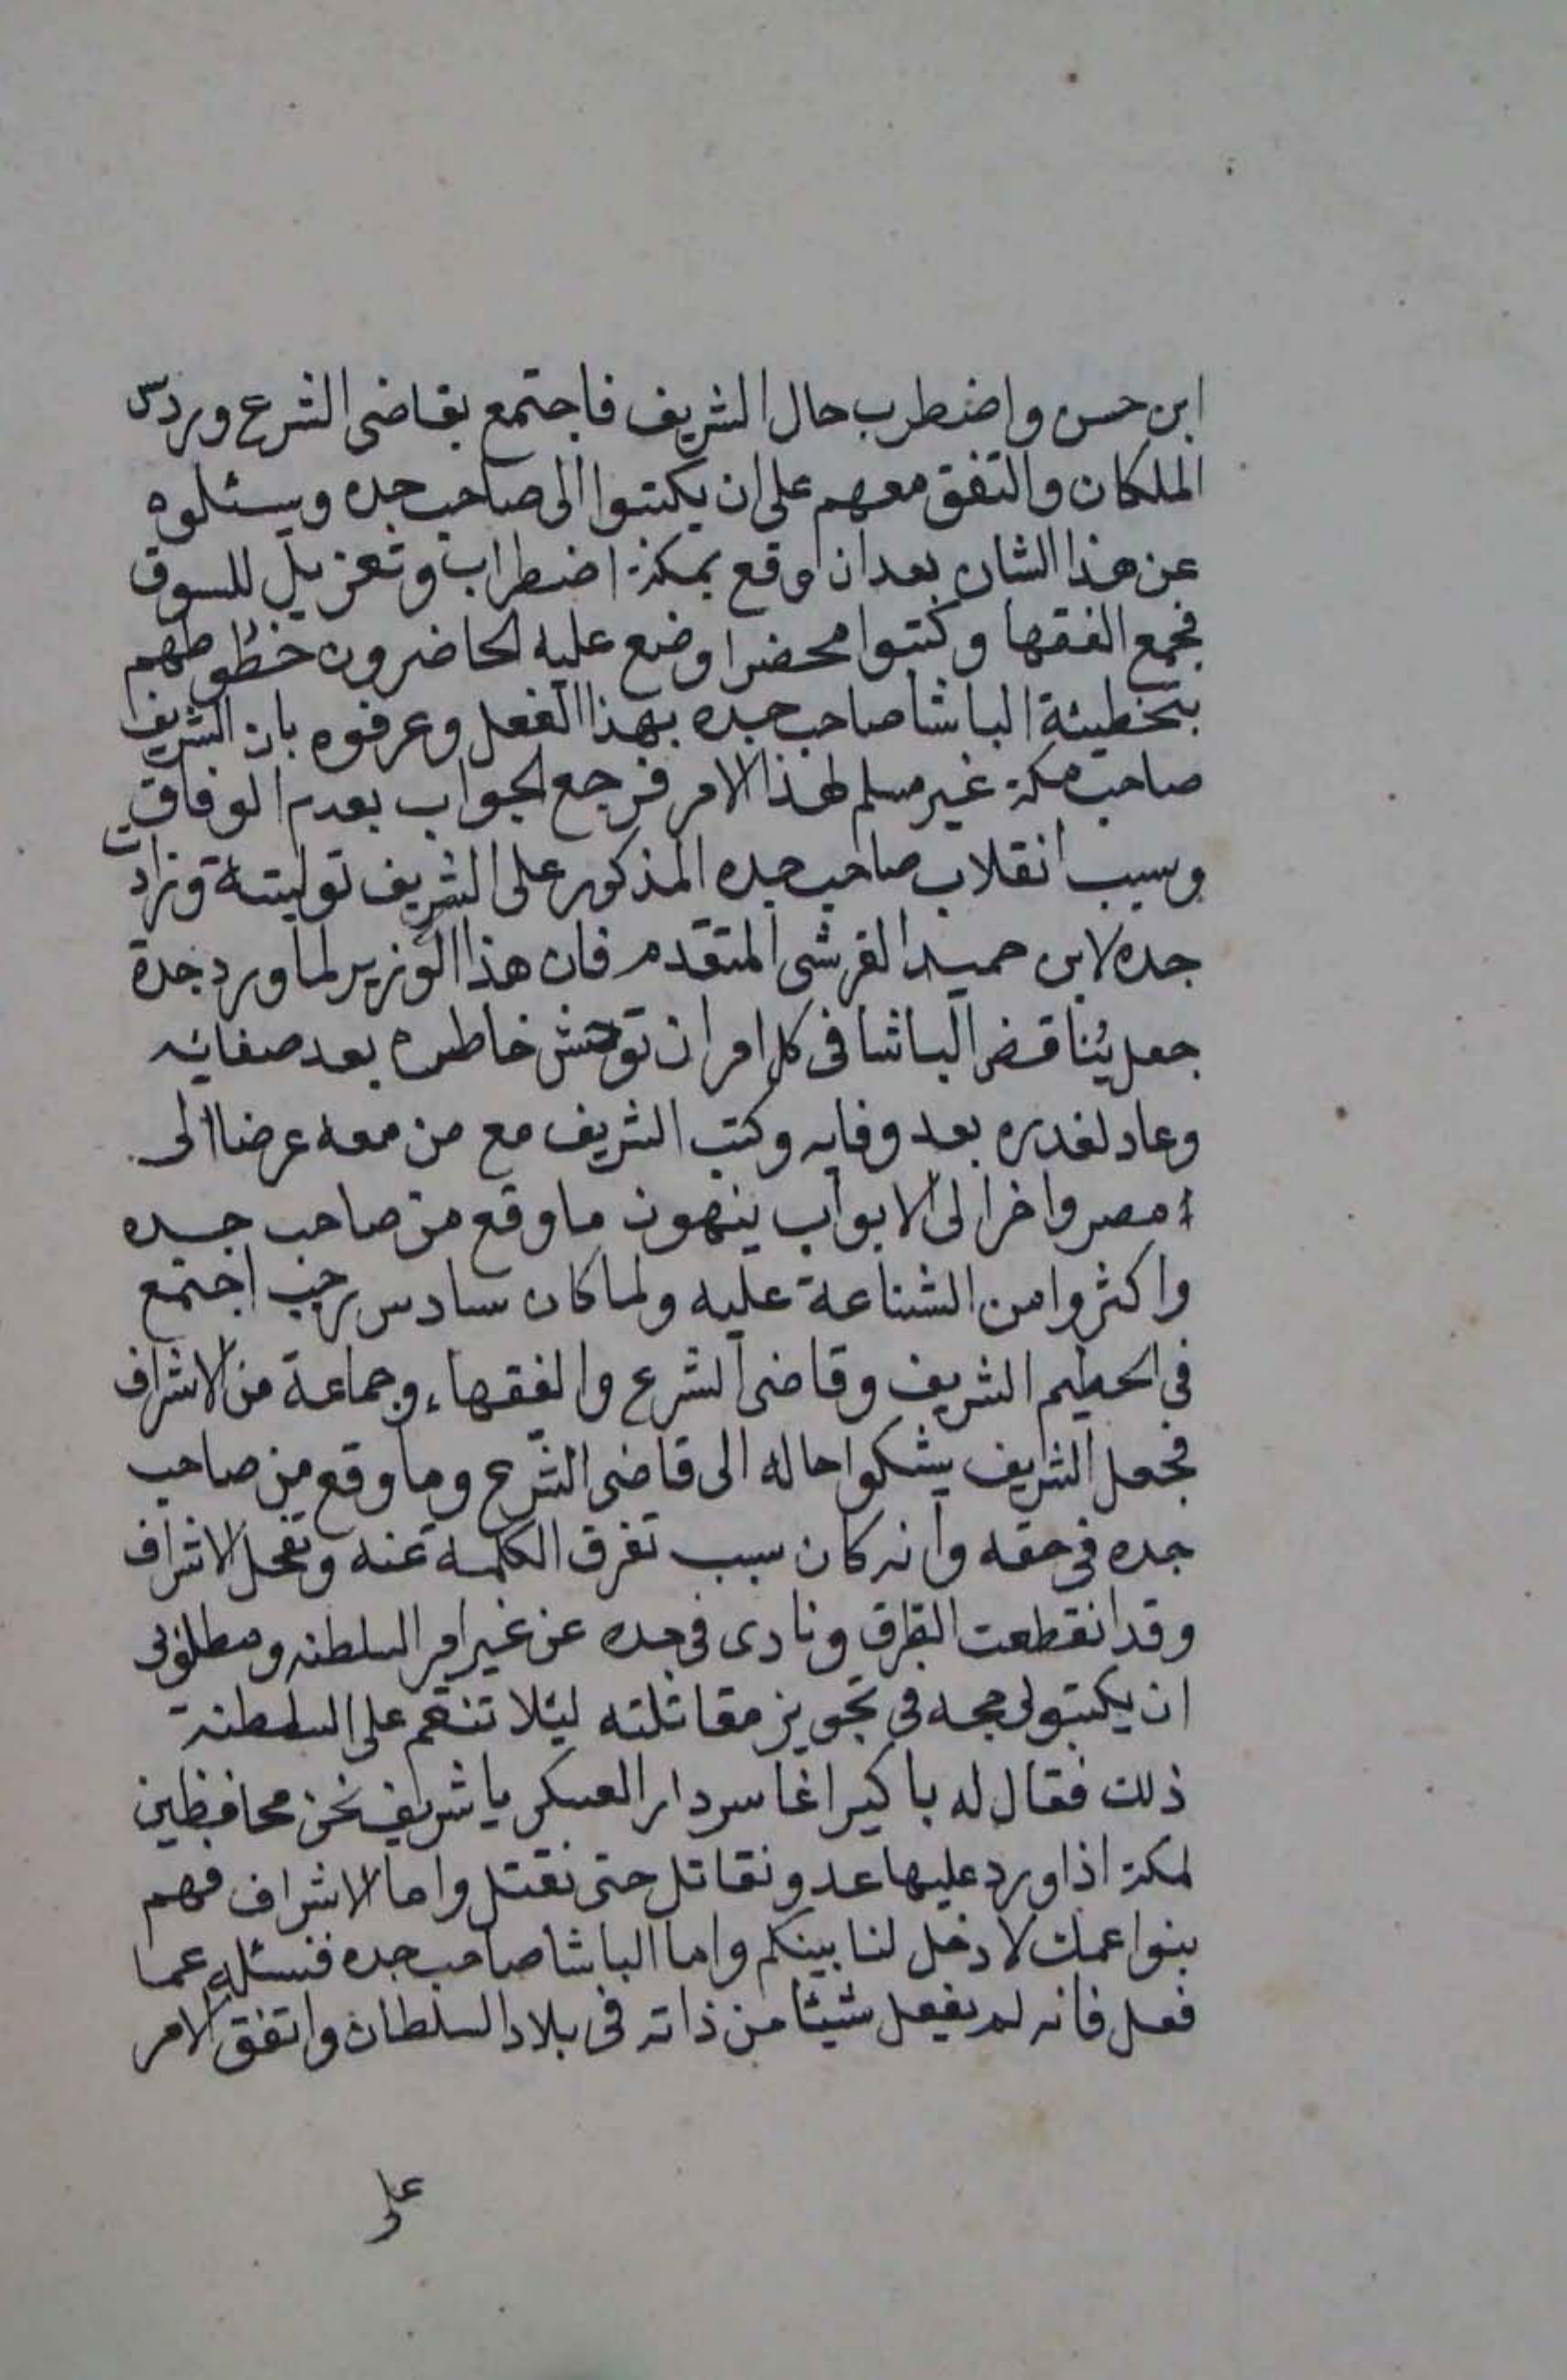 ابن حسن واضطرب حال الشريف فاجتمع بقاضى الشرع وردس
الملكان والتفق معهم على ان يكتبوا الى صاحب جده ويسئلوه
عن هذا الشان بعد ان وقع بمكة اضطراب وتعزيل للسوق
فجمع الفقها وكتبوا محضرا وضع عليه الحاضرون خطوطهم
بتخطيئة الباشا صاحب جده بهذا الفعل وعرفوه بان الشريف
صاحب مكة غير مسلم لهذا الامر فرجع الجواب بعدم الوفاق
وسبب انقلاب صاحب جده المذكور على الشريف توليته وزارت
جده لابن حميد القرشى المتقدم فان هذا الوزير لما ورد جدة
جعل يُناقض الباشا فى كل امر ان توحش خاطره بعد صفائه
وعاد لغدره بعد وفايه وكتب الشريف مع من معه عرضا الى
مصر واخر الى الابواب ينهون ما وقع من صاحب جده
واكثروا من الشناعة عليه ولما كان سادس رجب اجتمع
فى الحطيم الشريف وقاضى الشرع والفقهاء وجماعة من الاشراف
فجعل الشريف يشكوا حاله الى قاضى الشرع وما وقع من صاحب
جده فى حقه وانه كان سبب تفرق الكلمة عنه وتفحل الاشراف
وقد انقطعت الطرق ونادى فى جده عن غير امر السلطنه ومطلوبى
ان يكتبو لى حجه فى تجويز مقاتلته ليئلا تنقم على السلطنة
ذلك فقال له باكير اغا سردار العسكر يا شريف نحن محافظين
لمكة اذا ورد عليها عدو نقاتل حتى نقتل واما الاشراف فهم
بنوا عمك لا دخل لنا بينكم واما الباشا صاحب جده فنسئله عما
فعل فانه لم يفعل شيئا من ذاته فى بلاد السلطان واتفق الامر
على